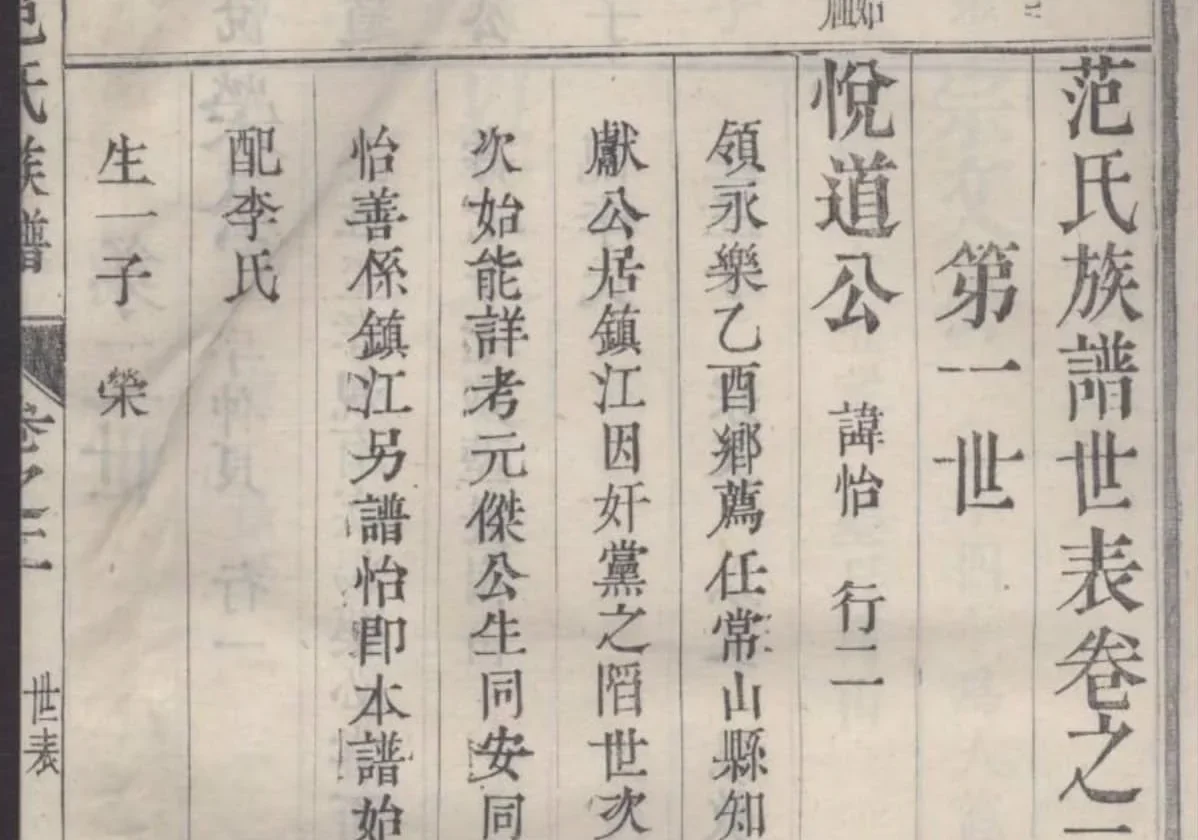 范氏族譜世表卷之
第一世
悅道公 諱怡 行二
領永樂乙酉鄉薦任常山縣知
獻公居鎮江因奸黨之陷世次
次始能詳考元傑公生同安同
怡善係鎮江另譜怡即本譜始
配李氏
生一子 榮
氏族譜 卷之 世表